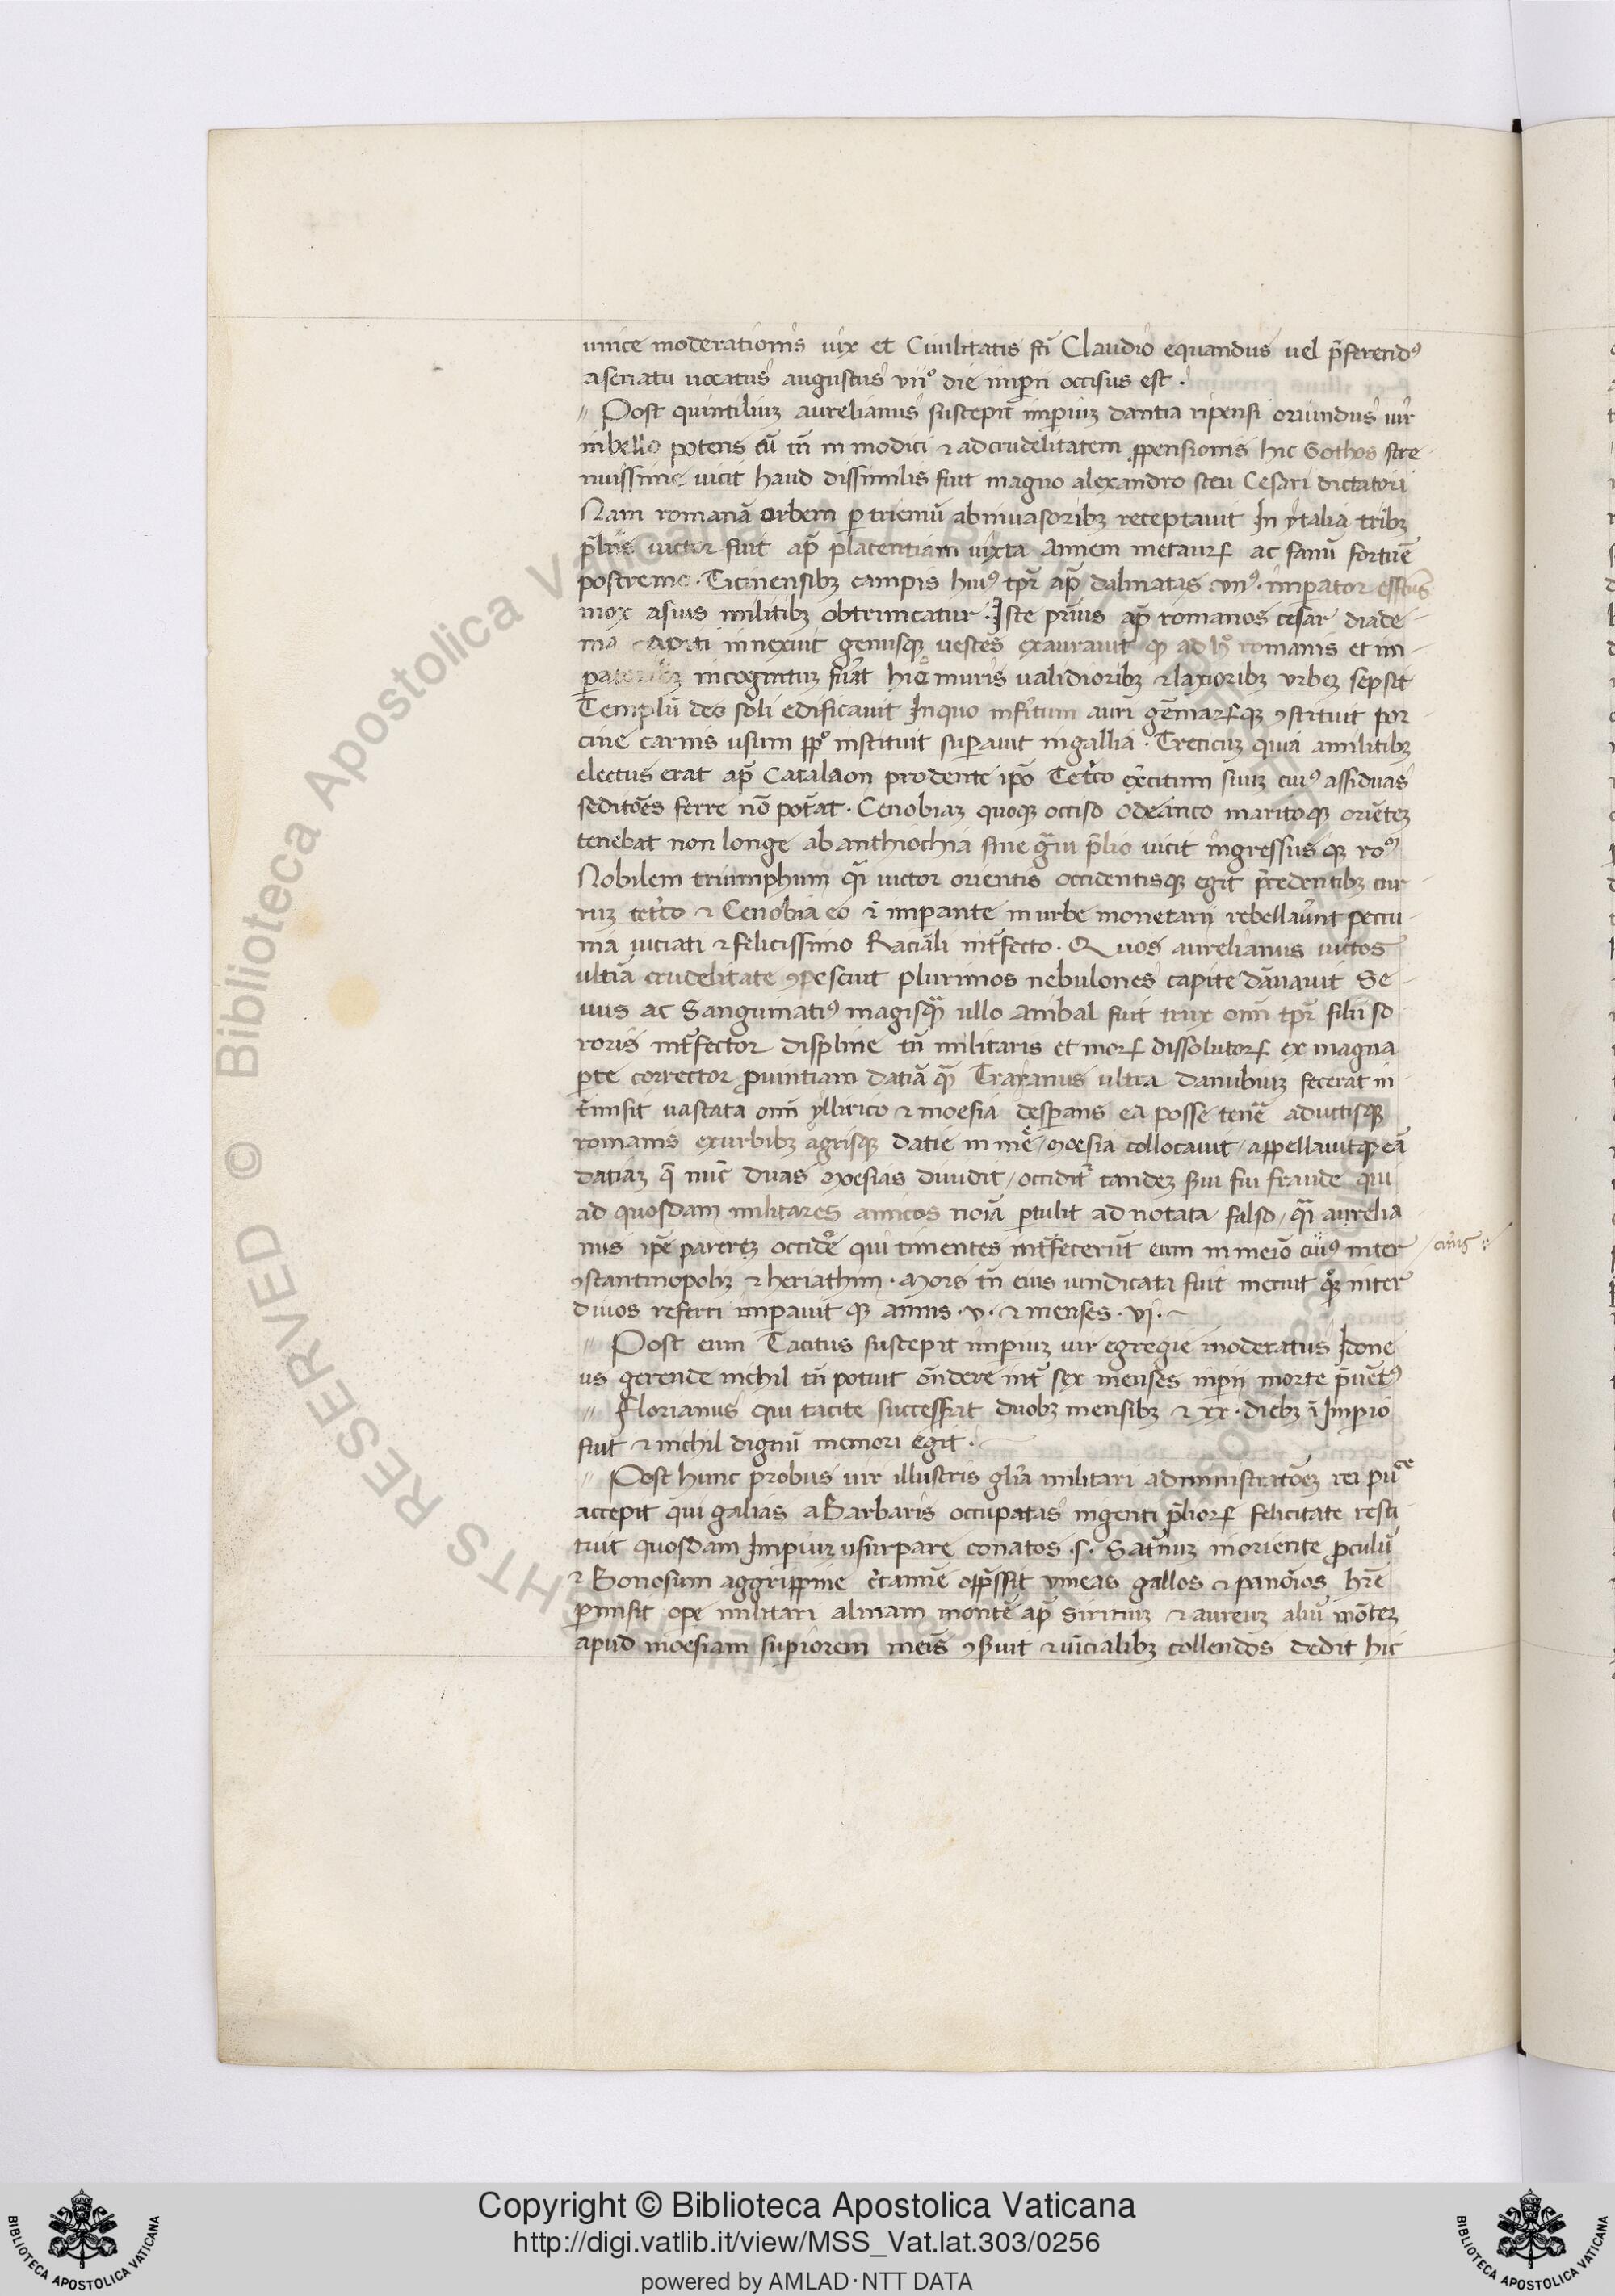 unice moderationis vix et Civilitatis fri Claudio equandus vel p̄ferendꝰ
a senatu vocatus augustus vii° die imperii occisus est ·
Post quintilium aurelianus suscepit imperiuꝫ dantia ripensi oriundus vir
in bello potens cū tn̄ in modici ⁊ ad crudelitatem ꝓpensionis hic Gothos stre
nuissime vicit haud dissimilis fuit magno alexandro seu Cesari dictatori
Nam romanā orbem p trieniū ab invasoribꝫ receptavit In ytalia tribꝫ
p̄liis victor fuit ap̄ placentiam iuxta Amnem metaurꝝ ac fanū fortūe
postremo · Ticinensibꝫ campis huiꝰ tp̄r ap̄ dalmatas vnꝰ · imperator
mox a suis militibꝫ obtruncatur · Iste prius ap̄ romanos cesar diade
ma capiti innexuit gemisqꝫ vestes exauravit qꝫ ad hꝰ romanis et im
incognituꝫ fu͛at hic muris validioribꝫ ⁊ laxioribꝫ urbeꝫ sepsit
Templū deo soli edificavit In quo infi͛tum auri gēmarꝝqꝫ ꝯstituit por
cine carnis usum ppꝰ instituit superavit in gallia · Treticuꝫ quia a militibꝫ
electus erat ap̄ Catalaon prodente ip̄o Tet͛co ex͛citum suuꝫ cuiꝰ assiduas
seditōes ferre nō pot͛at · Cenobiaꝫ quoqꝫ occiso Odeanco maritoqꝫ oriēteꝫ
tenebat non longe ab anthiochia sine gͣvi p̄lio vicit ingressus qꝫ roᵃᵐ
Nobilem triumphum qͣi victor orientis occidentisqꝫ egit p̄cedentibꝫ cur
ruꝫ tet͛co ⁊ Cenobia eo ī imperante in urbe monetarij rebellavūnt peccu
nia viciati ⁊ felicissimo Raciāli int͛fecto · Quos aurelianus victos
ultīa crudelitate ꝯpescuit plurimos nebulones capite dānavit Se
vus ac Sanguinatiꝰ magisqͣꝫ ullo Anibal fuit trux om̄i tp̄r filii so
roris int͛fector displine tn̄ militaris et morꝝ dissolutorꝝ ex magna
pte corrector ꝓvintiam datiā qͣꝫ Trayanus ultra danubiuꝫ fecerat in
t͛misit vastata om̄i yllirico ⁊ moesia desperans ea posse tenē aductisqꝫ
romanis ex urbibꝫ agrisqꝫ datie in mē / Moesia collocavit / appellavitqꝫ eā
datiaꝫ q̄ nūc duas Moesias dividit / occidit͛ tandeꝫ s͛vi sui fraude qui
ad quosdam militares amicos noīa ptulit ad notata falso / qͣi aurelia
nus ip̄e pareteꝫ occidē qui timentes int͛fecerūt eum in meio inter
ꝯstantinopolꝫ ⁊ heriathim · Mors tn̄ eius vindicata fuit meruit qꝫ inter
divos referri imperavit qꝫ annis · v · ⁊ menses · vi ·
Post eum Tacitus suscepit imperiuꝫ vir egregie moderatus Idone
us gerende nichil tn̄ potuit on̄dere int͛ sex menses imperii morte p̄vētꝰ
Florianus qui tacite success͛at duobꝫ mensibꝫ ⁊ xx · diebꝫ ī Imperio
fuit ⁊ nichil dignū memori egit ·
Post hunc probus vir illustris gl̄ia militari administratōeꝫ rei pu͞ce
accepit qui galias a Barbaris occupatas ingenti p̄liorꝝ felicitate resti
tuit quosdam Imperiuꝫ usurpare conatos · s · Sat͛nuꝫ in oriente ꝓculū
⁊ Bonosum aggrippine c͛tamīe opp̄ssit vineas gallos ⁊ panōios hr̄e
permisit ope militari almam montē ap̄ Sirmiuꝫ ⁊ aureuꝫ aliū mōteꝫ
apud moesiam superiorem ꝯs͛uit ⁊ collendos dedit hic